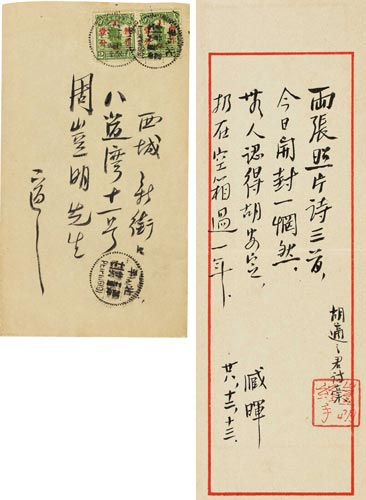 西城 新街口
八道灣十一号
周豈明先生
兩張照片詩三首,
今日開封一惘然.
無人認得胡安定,
扔在空箱過一年.
臧暉
廿八,十二,十三.
胡適之君詩